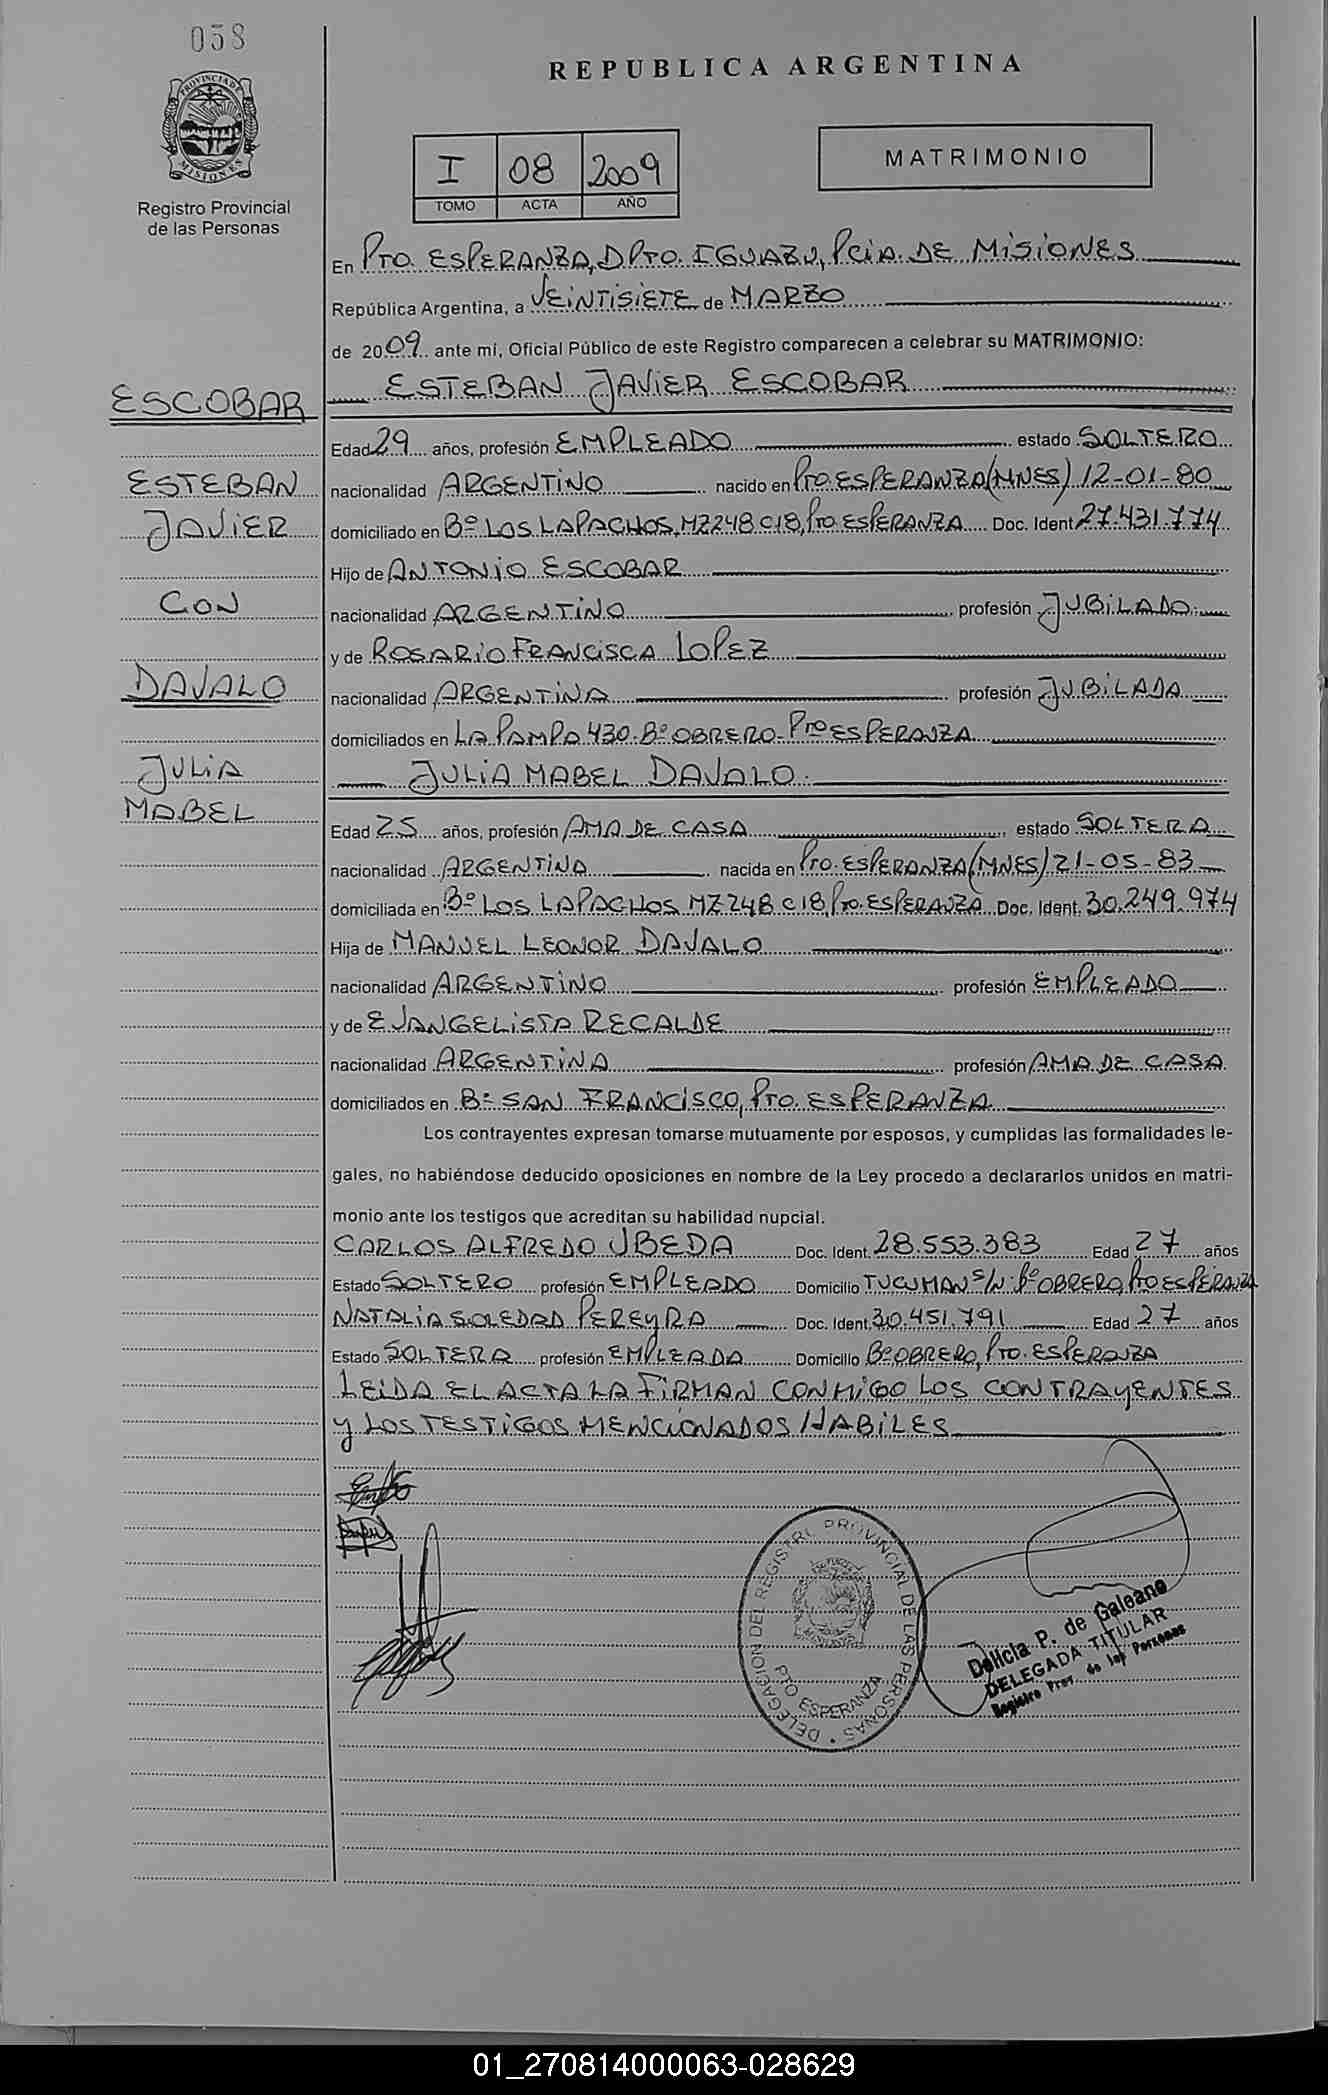 058
PROVINCIA DE
MISIONES
Registro Provincial
de las Personas
REPUBLICA ARGENTINA
I 08 2009
TOMO ACTA AÑO
MATRIMONIO
En Pto. ESPERANZA, DPTO. IGUAZU, PCiA. DE MiSiONES
República Argentina, a VEiNTISiETE de MARZO
de 2009 ante mí, Oficial Público de este Registro comparecen a celebrar su MATRIMONIO:
ESTEBAN JAViER ESCOBAR
ESCOBAR
Edad 29 años, profesión EMPLEADO estado SOLTERO
ESTEBAN
nacionalidad ARGENTiNO nacido en Pto. ESPERANZA (MNES) 12-01-80
JAViER
domiciliado en Bº LOS LAPACHOS, MZ 248 C 18, Pto ESPERANZA Doc. Ident 27.431.774
Hijo de ANTONiO ESCOBAR
CON
nacionalidad ARGENTiNO profesión JUBiLADO
y de ROSARiO FRANCiSCA LOPEZ
DAVALO
nacionalidad ARGENTiNA profesión JUBiLADA
domiciliados en LA PAMPA 430. Bº OBRERO- Pto ESPERANZA
JULiA
JULiA MABEL DAVALO
MABEL
Edad 25 años, profesión AMA DE CASA estado SOLTERA
nacionalidad ARGENTiNA nacida en Pto. ESPERANZA (MNES) 21-05-83
domiciliada en Bº LOS LAPACHOS MZ 248 C 18, Pto. ESPERANZA Doc. Ident. 30.249.974
Hija de MANUEL LEONOR DAVALO
nacionalidad ARGENTiNO profesión EMPLEADO
y de EVANGELiSTA RECALDE
nacionalidad ARGENTiNA profesión AMA DE CASA
domiciliados en Bº SAN FRANCISCO, Pto. ESPERANZA
Los contrayentes expresan tomarse mutuamente por esposos, y cumplidas las formalidades le-
gales, no habiéndose deducido oposiciones en nombre de la Ley procedo a declararlos unidos en matri-
monio ante los testigos que acreditan su habilidad nupcial.
CARLOS ALFREDO UBEDA Doc. Ident. 28.553.383 Edad 27 años
Estado SOLTERO profesión EMPLEADO Domicilio TUCUMAN S/N. Bº OBRERO, Pto ESPERANZA
NATALiA SOLEDAD PEREyRA Doc. Ident. 30.451.791 Edad 27 años
Estado SOLTERA profesión EMPLEADA Domicilio Bº OBRERO, Pto. ESPERANZA
LEIDA EL ACTA LA FiRMAN CONMiGO LOS CONTRAyENTES
y LOS TESTiGOS MENCiONADOS HABiLES
DELEGACION DEL REGISTRO PROVINCIAL DE LAS PERSONAS
PTO ESPERANZA
Delicia P. de Galeano
DELEGADA TITULAR
Registro Prov. de las Personas
01_270814000063-028629